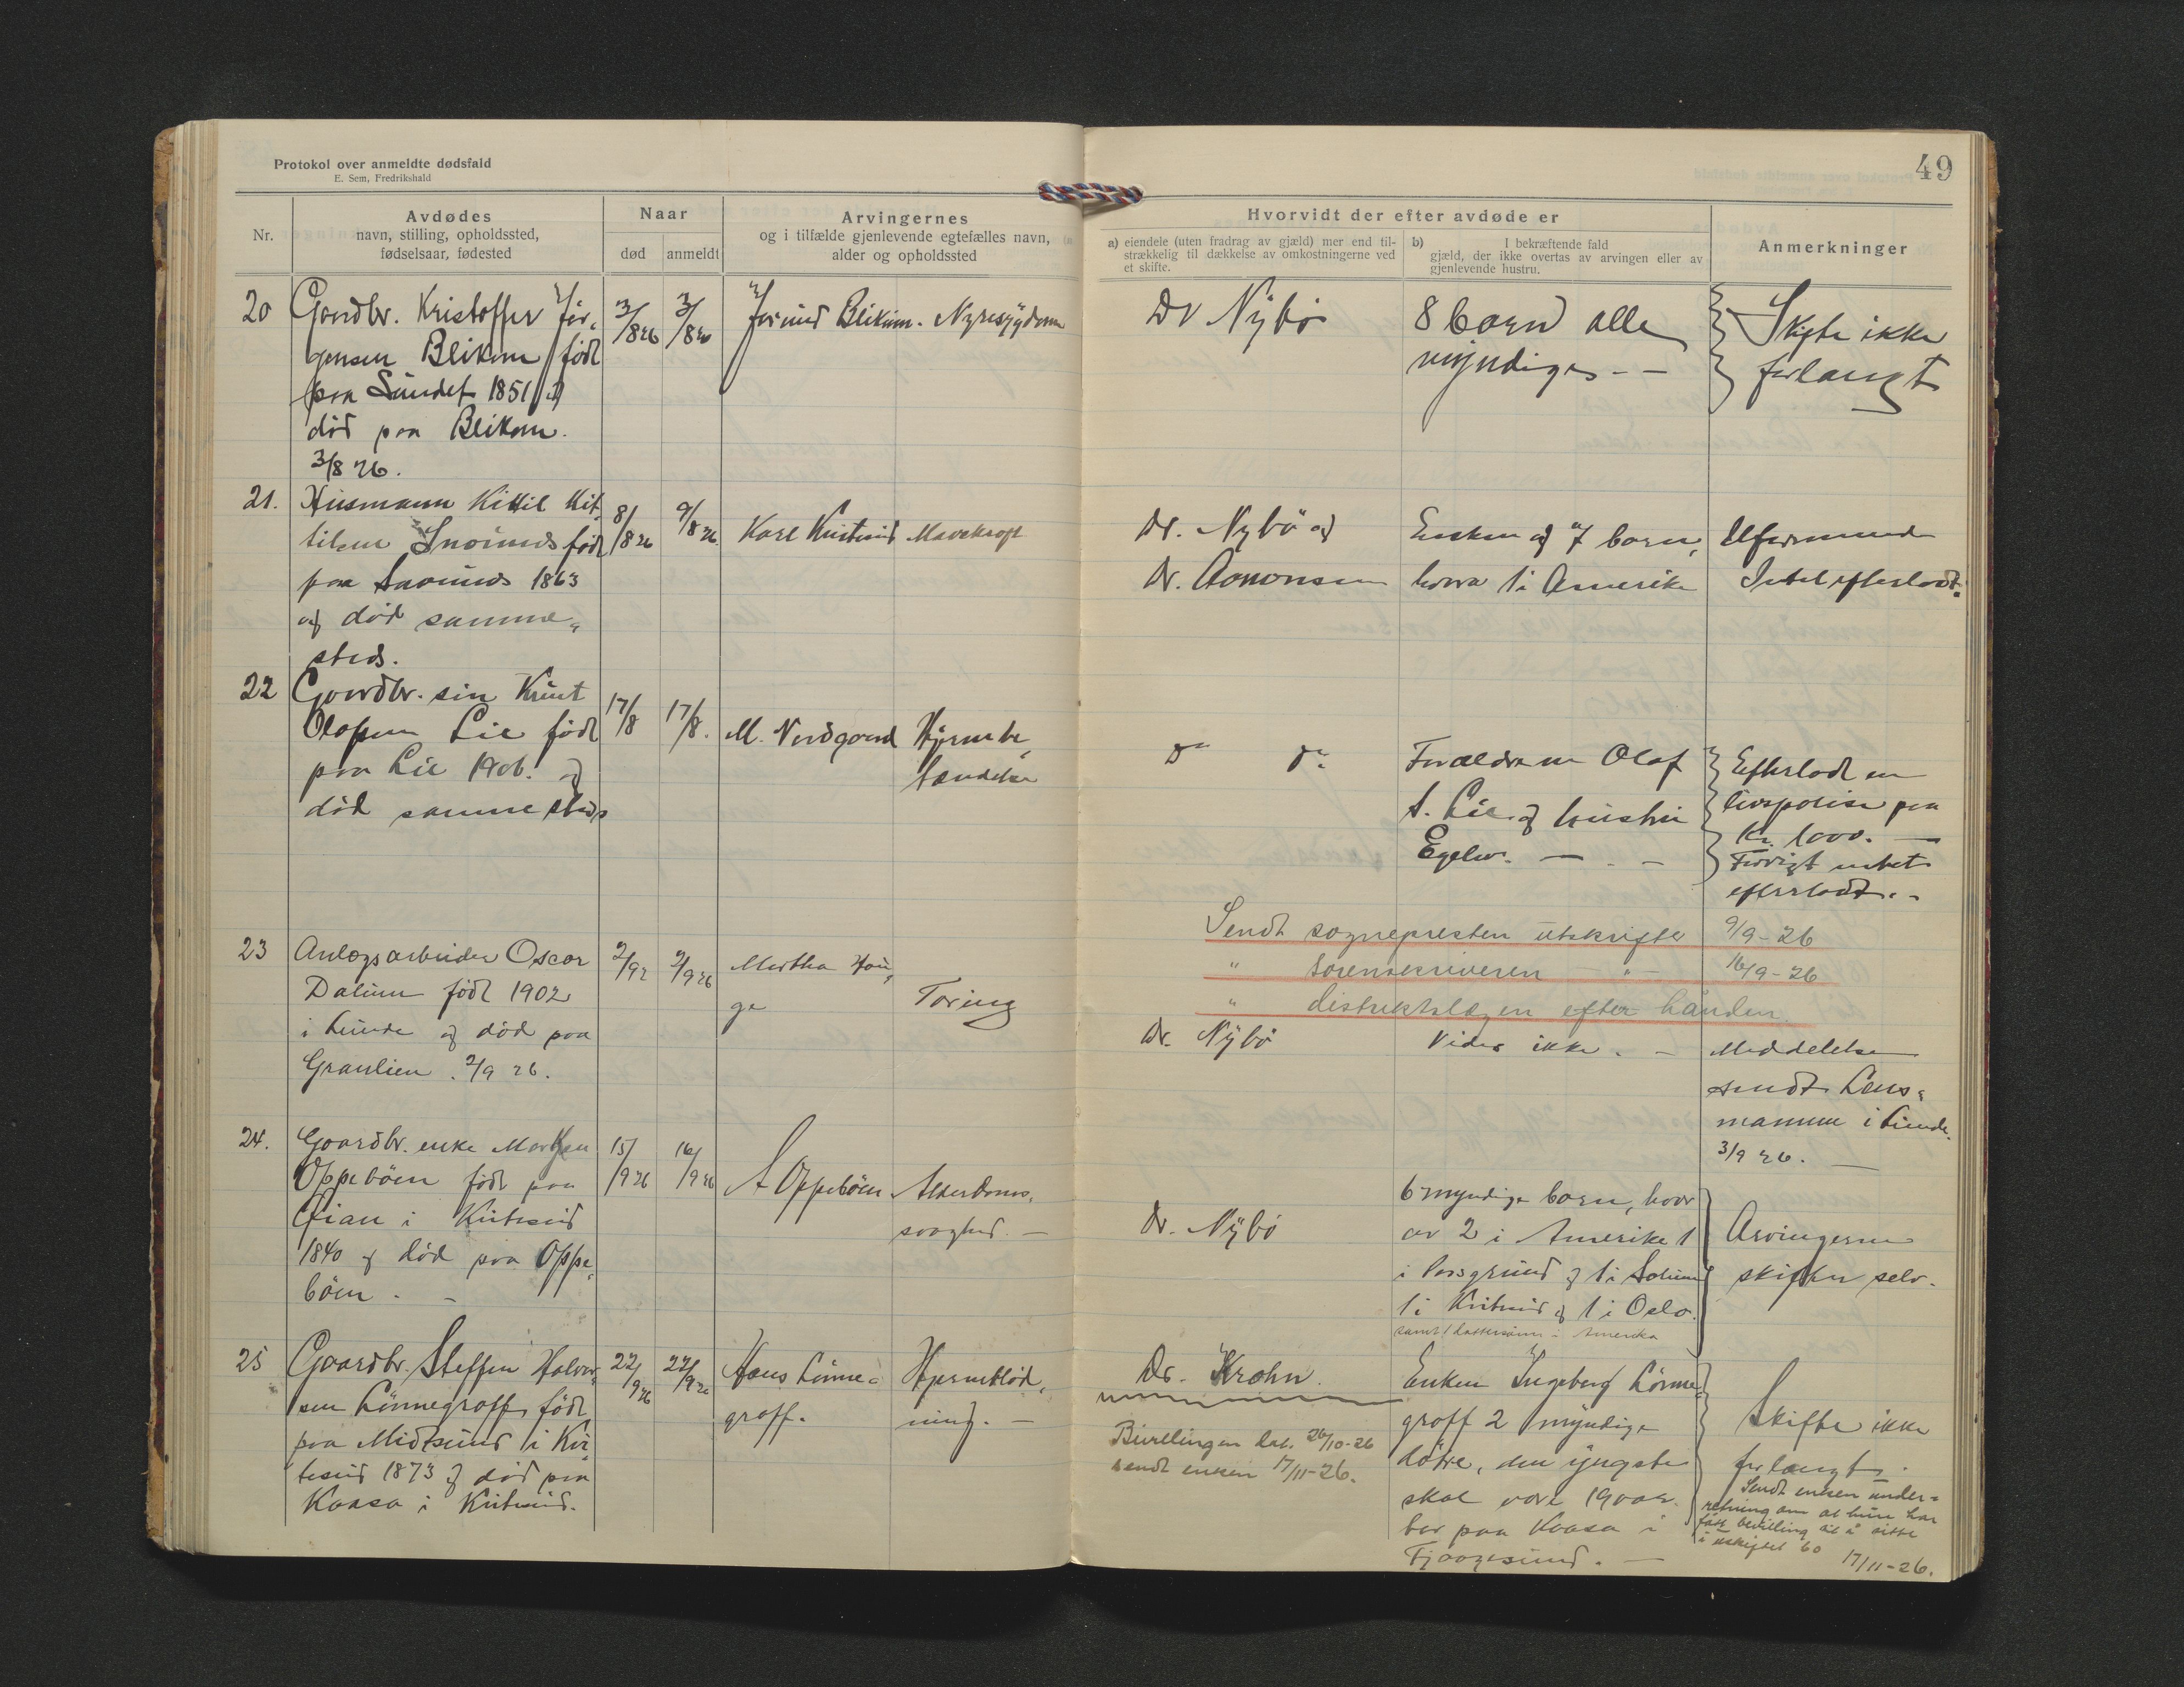 Protokol over anmeldte dødsfald
E. Sem, Fredrikshald
49
Nr.
Avdødes
navn, stilling, opholdssted,
fødselsaar, fødested
Naar
død
anmeldt
Arvingernes
og i tilfælde gjenlevende egtefælles navn,
alder og opholdssted
Hvorvidt der efter avdøde er
a) eiendele (uten fradrag av gjæld) mer end til-
strækkelig til dækkelse av omkostningerne ved
et skifte.
b) I bekræftende fald
gjæld, der ikke overtas av arvingen eller av
gjenlevende hustru.
Anmerkninger
20
Gaardbr. Kristoffer Jör-
gensen Blikom född
paa Sundet 1851
död paa Blikom.
3/8 26.
3/8 26
3/8 26
Blikom. Nyresygdom
Dr Nybö
8 born alle
myndige - -
Skifte ikke
forlangt
21.
Husmann Kittil Kit-
tilsen Snorunds föd
paa Snorunds 1863
og död samme-
steds.
8/8 26
9/8 26.
Karl Kvitesund Mavekræft
Dr. Nybö og
Dr. Aamonsen
Enken og 7 born,
hvorav 1 i Amerika
Uformuende
Intet efterladt.
22
Gaardbr. sön Knut
Olafsen Lie föd
paa Lie 1906. og
död sammesteds
17/8
17/8.
M. Nordgaard
Hjernebe-
tændelse
Do Do
Forældrene Olaf
A. Lie og hustru
Egelev. - . -
Efterlod en
livspolise paa
Kr. 1000. -
Forövrigt intet
efterladt. -
Sendt sognepresten utskrifter 9/9-26
" Sorenskriveren - " - 16/9-26
" distriktslægen efter hånden.
23
Anlægsarbeider Oscar
Dalum föd 1902
i Lunde og död paa
Granlien. 2/9 26.
2/9 2
2/9 26
Martha Hau-
ge
Tæring
Dr. Nybö
Vides ikke. -
Meddelelse
sendt Lens-
mannen i Lunde.
3/9 26. -
24.
Gaardbr. enke
Oppeböen föd paa
i Kvitesund
1840 og död paa Oppe-
böen. -
15/9 26
16/9 26
A Oppeböen
Alderdoms-
svaghed. -
Dr. Nybö
6 myndige born, hvor
av 2 i Amerika 1
i Porsgrund og 1 i Solum
1 i Kvitesund og 1 i Oslo.
samt 1 dattersönn i Amerika
Arvingerne
skifter selv.
25
Gaardbr. Steffen Halvor-
sen Lönnegraff, föd
paa Midtsund i Kvi-
tesund 1873 og död paa
Kaasa i Kvitesund.
22/9 26
22/9 26
Hans Lönne-
graff.
Hjerneblöd-
ning. -
Dr. Krohn.
Bevillingen dat. 26/10-26
sendt enken 17/11-26.
Enken Ingeborg Lönne-
graff 2 myndige
dötre, den yngste
skal være 19 aar.
bor paa Kaasa i
Fjaagesund. -
Skifte ikke
forlangt.
Sendt enken under-
retning om at hun har
fått bevilling til å sitte
i uskiftet bo 17/11-26.